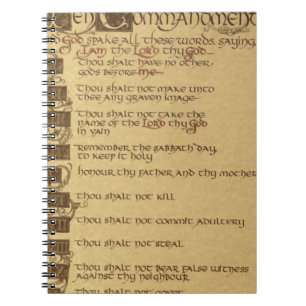 en Commandment
God spake all these words, saying,
I am the Lord thy God...
Thou shalt have no other
gods before me
Thou shalt not make unto
thee any graven image
Thou shalt not take the
name of the Lord thy God
in vain
Remember the sabbath day,
to keep it holy
honour thy father and thy mothe
Thou shalt not kill
Thou shalt not commit adultery
Thou shalt not steal
Thou shalt not bear false witness
against thy neighbour
Thou shalt not covet